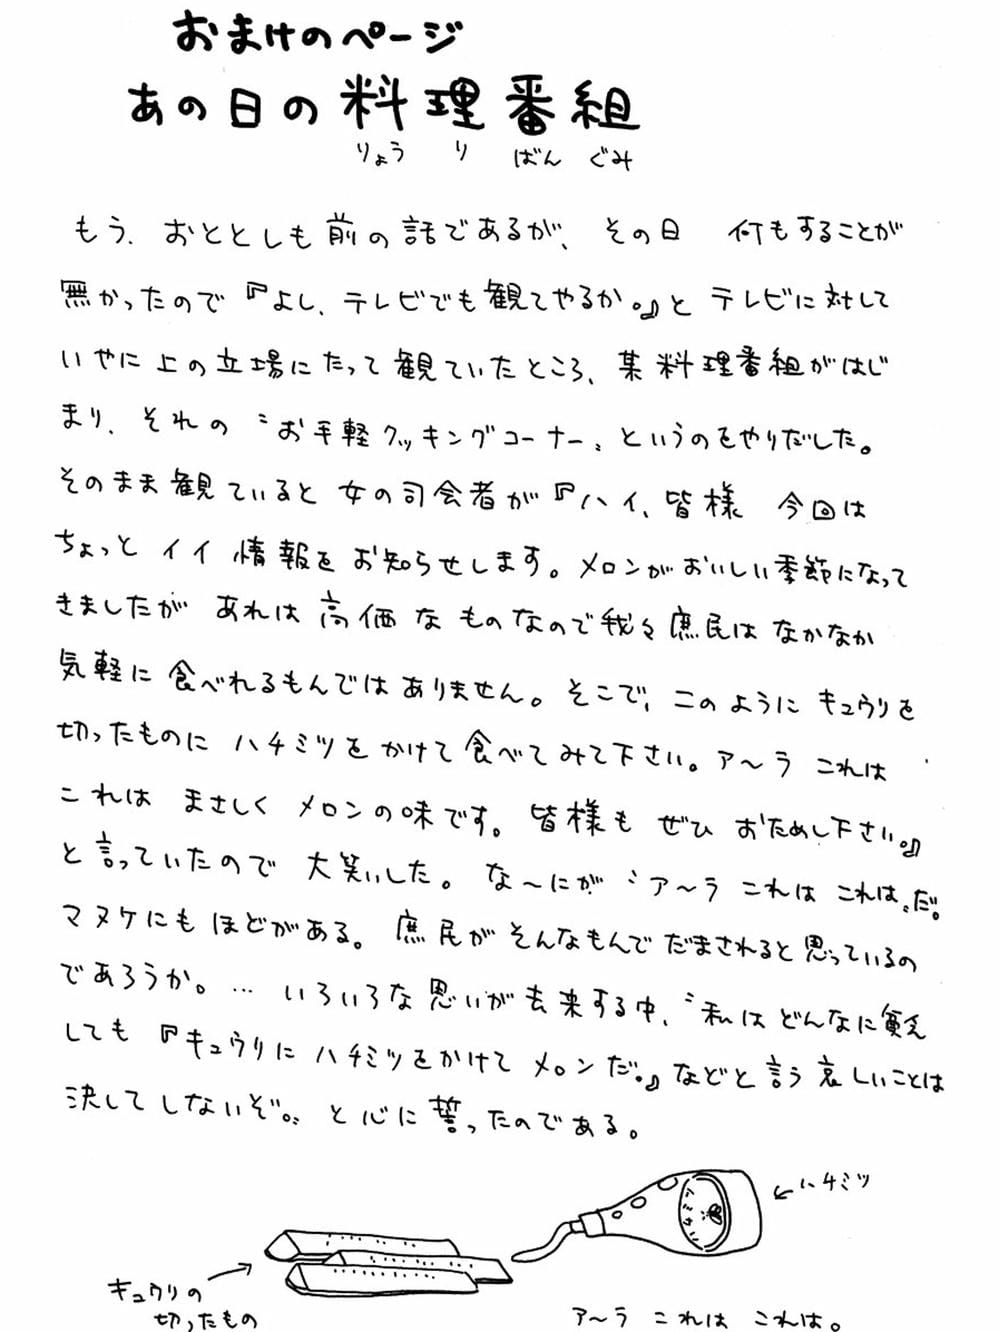 おまけのページ
あの日の料理番組
りょう り ばん ぐみ
もう、おととしも前の話であるが、その日 何もすることが
無かったので『よし、テレビでも観てやるか。』と テレビに対して
いやに上の立場にたって観ていたところ、某料理番組がはじ
まり、それの〝お手軽クッキングコーナー〟というのをやりだした。
そのまま観ていると女の司会者が『ハイ、皆様 今回は
ちょっと イイ 情報をお知らせします。メロンがおいしい季節になって
きましたが あれは高価なものなので我々庶民はなかなか
気軽に食べれるもんではありません。そこで、このようにキュウリを
切ったものに ハチミツをかけて食べてみて下さい。ア〜ラ これは
これは まさしく メロンの味です。皆様も ぜひ おためし下さい。』
と言っていたので 大笑いした。な〜にが〝ア〜ラ これは これは〟だ。
マヌケにもほどがある。庶民がそんなもんでだまされると思っているの
であろうか。… いろいろな思いが去来する中、〝私はどんなに貧乏
しても『キュウリに ハチミツをかけて メロンだ。』などと言う哀しいことは
決してしないぞ。〟と心に誓ったのである。
ハチミツ
ハチミツ
キュウリの
切ったもの
ア〜ラ これは これは。